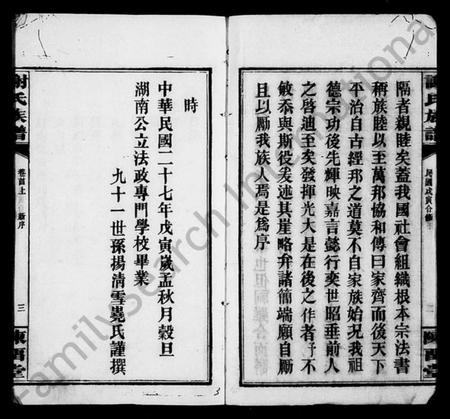 謝氏族譜
民國戊寅合修
二
陳留堂
隔者親睦矣蓋我國社會組織根本宗法書
稱族睦以至萬邦協和傳曰家齊而後天下
平治自古經邦之道莫不自家族始況我祖
德宗功後先輝映嘉言懿行奕世昭垂前人
之啓迪至矣發揮光大是在後之作者予不
敏忝與斯役爰述其崖略弁諸簡端願自勵
且以勵我族人焉是爲序
時
中華民國二十七年戊寅歲孟秋月穀旦
湖南公立法政專門學校畢業
九十一世孫揚清雪堯氏謹撰
謝氏族譜
卷首上
新序
三
陳留堂
Familysearch International